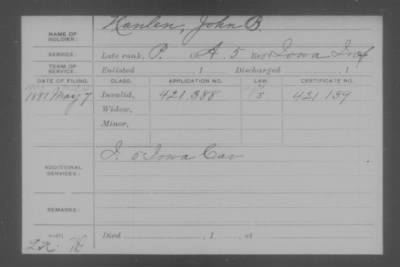 NAME OF HOLDER: Hanlen, John B.
SERVICE: Late rank, P. Co A. 5 Reg't Iowa Inf
TERM OF SERVICE: Enlisted 1 Discharged , 1
DATE OF FILING. CLASS. APPLICATION NO. LAW. CERTIFICATE NO.
1881 May 7 Invalid, 421388 421139
Widow,
Minor,
ADDITIONAL SERVICES: I. 5 Iowa Cav
REMARKS:
Died , 1 , at